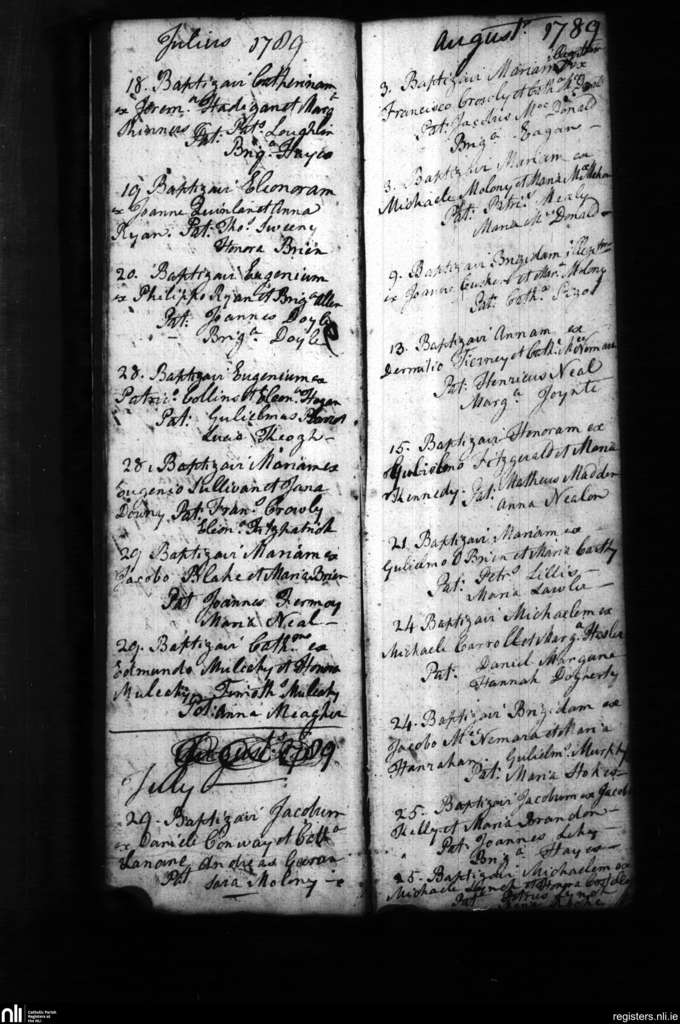 Julius 1789
18. Baptizavi Catherinam
ex Jerem.ª et Marg.ª
Pat: Pat.s Loughlin
Brig.ª Hayes
19 Baptizavi Eleonoram
ex Joanne Quinlan et Anna
Ryan. Pat: Tho.s Sweeny
Honora Brien
20. Baptizavi Eugenium
ex Philippo Ryan et Brig.ª Allen
Pat: Joannes Doyle
Brig.ª Doyle
28. Baptizavi Eugenium ex
Patric.o Collins et Eleon.ª Hogan
Pat: Gulielmus
Lucia Theogh
28. Baptizavi Mariam ex
Eugenio Sullivan et Jana
Downy Pat: Fran.s Crowly
Eleon.ª Fitzpatrick
29 Baptizavi Mariam ex
Jacobo Blake et Maria Brien
Pat Joannes Fermoy
Maria Neal
29. Baptizavi Cath. ex
Edmundo Mulcahy et Honora
Mulcahy Timoth.s Mulcahy
Pat: Anna Meagher
August. 1789
July
29. Baptizavi Jacobum
ex Daniele Conway et Cath.ª
Lanane Andreas
Pat Sara Molony
August. 1789
3. Baptizavi Mariam ex
Francisco Crowly et Cath.ª McDonald
Pat: Jacobus MacDonald
Brig.ª Eagan
3. Baptizavi Mariam ex
Michaele Molony et Maria
Pat: Patric.s Healy
Maria McDonald
9. Baptizavi Brigidam
ex Joanne et Mar.ª Molony
Pat: Cath.ª
13. Baptizavi Annam ex
Dermitio Tierney et Cath. McNemara
Pat: Henricus Neal
Marg.ª Joynte
15. Baptizavi Honoram ex
Gulielmo Fitzgerald et Maria
Kennedy. Pat: Matheus Madden
Anna Nealon
21. Baptizavi Mariam ex
Guliamo O Brien et Maria Carthy
Pat: Petr.s Lillis
Maria Lawler
24 Baptizavi Michaelem ex
Michaele Carroll et Marg.ª
Pat: Daniel Margane
Hannah Dogherty
24. Baptizavi Brigidam ex
Jacobo McNemara et Maria
Hanrahan. Gulielm.s Murphy
Pat: Maria Stokes
25. Baptizavi Jacobum ex Jacobo
Kelly et Maria Brandon
Pat: Joannes Lehy
Brig.ª Hayes
25. Baptizavi Michaelem ex
Michaele Lynch et
Pat Patrius Lynch
nli
Catholic Parish
Registers at
the NLI
registers.nli.ie